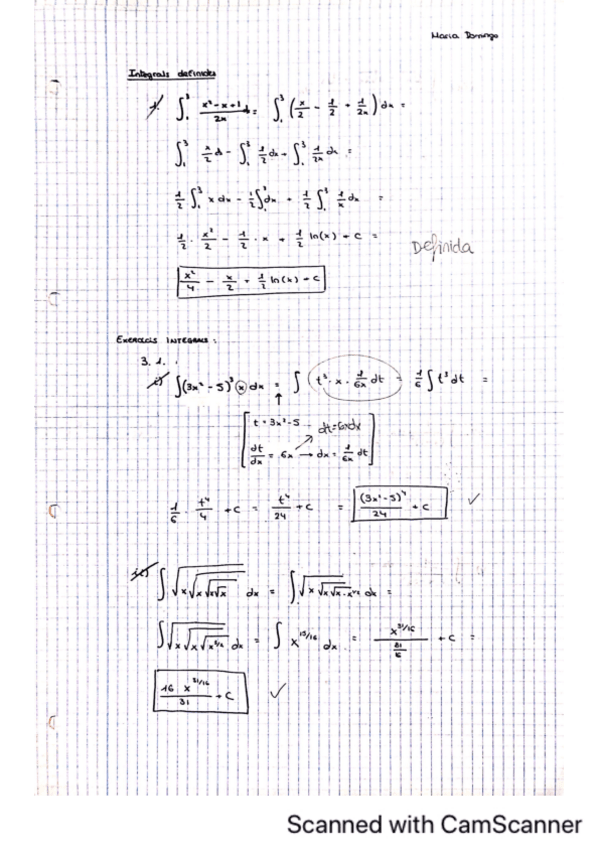 Maria Domingo
Integrals definides
1. ∫₁³ (x²-x+1)/(2x) dx = ∫₁³ (x/2 - 1/2 + 1/(2x)) dx =
∫₁³ x/2 dx - ∫₁³ 1/2 dx + ∫₁³ 1/(2x) dx =
1/2 ∫₁³ x dx - 1/2 ∫₁³ dx + 1/2 ∫₁³ 1/x dx =
1/2 · x²/2 - 1/2 · x + 1/2 ln(x) + C =
Definida
x²/4 - x/2 + 1/2 ln(x) + C
EXERCICIS INTEGRALS:
3.1.
i) ∫(3x²-5)³ x dx = ∫ (t³ · x · 1/(6x) dt) = 1/6 ∫ t³ dt =
t = 3x²-5 dt=6xdx
dt/dx = 6x → dx = 1/(6x) dt
1/6 · t⁴/4 + C = t⁴/24 + C = (3x²-5)⁴/24 + C ✓
∫√(x√(x√(x√x))) dx = ∫√(x√(x√(x·x^(1/2)))) dx =
∫√(x√(x√(x^(3/2)))) dx = ∫ x^(15/16) dx = x^(31/16)/(31/16) + C =
16 x^(31/16)/31 + C ✓
Scanned with CamScanner